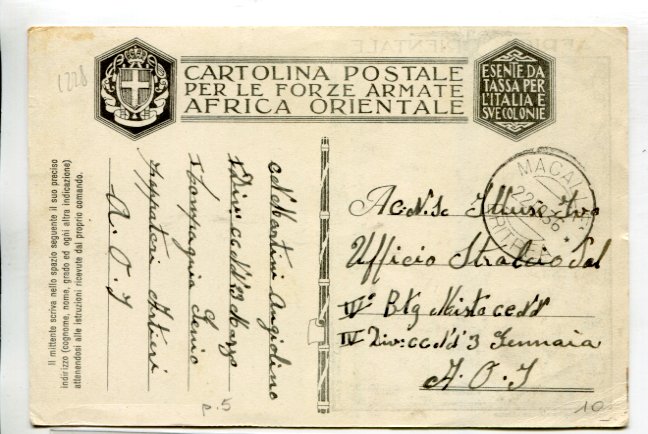 1228
CARTOLINA POSTALE
PER LE FORZE ARMATE
AFRICA ORIENTALE
ESENTE DA
TASSA PER
L'ITALIA E
SVE COLONIE
Il mittente scriva nello spazio seguente il suo preciso
indirizzo (cognome, nome, grado ed ogni altra indicazione)
attenendosi alle istruzioni ricevute dal proprio comando.
Martini Angiolino
Marzo
Compagnia Genio
Zappatori Artieri
A. O. I
MACAL
22
36
ERITREA
Ufficio Stralcio
IV° Btg Misto CCNN
IV Div: CCNN 3 Gennaio
A. O. I
p. 5
10